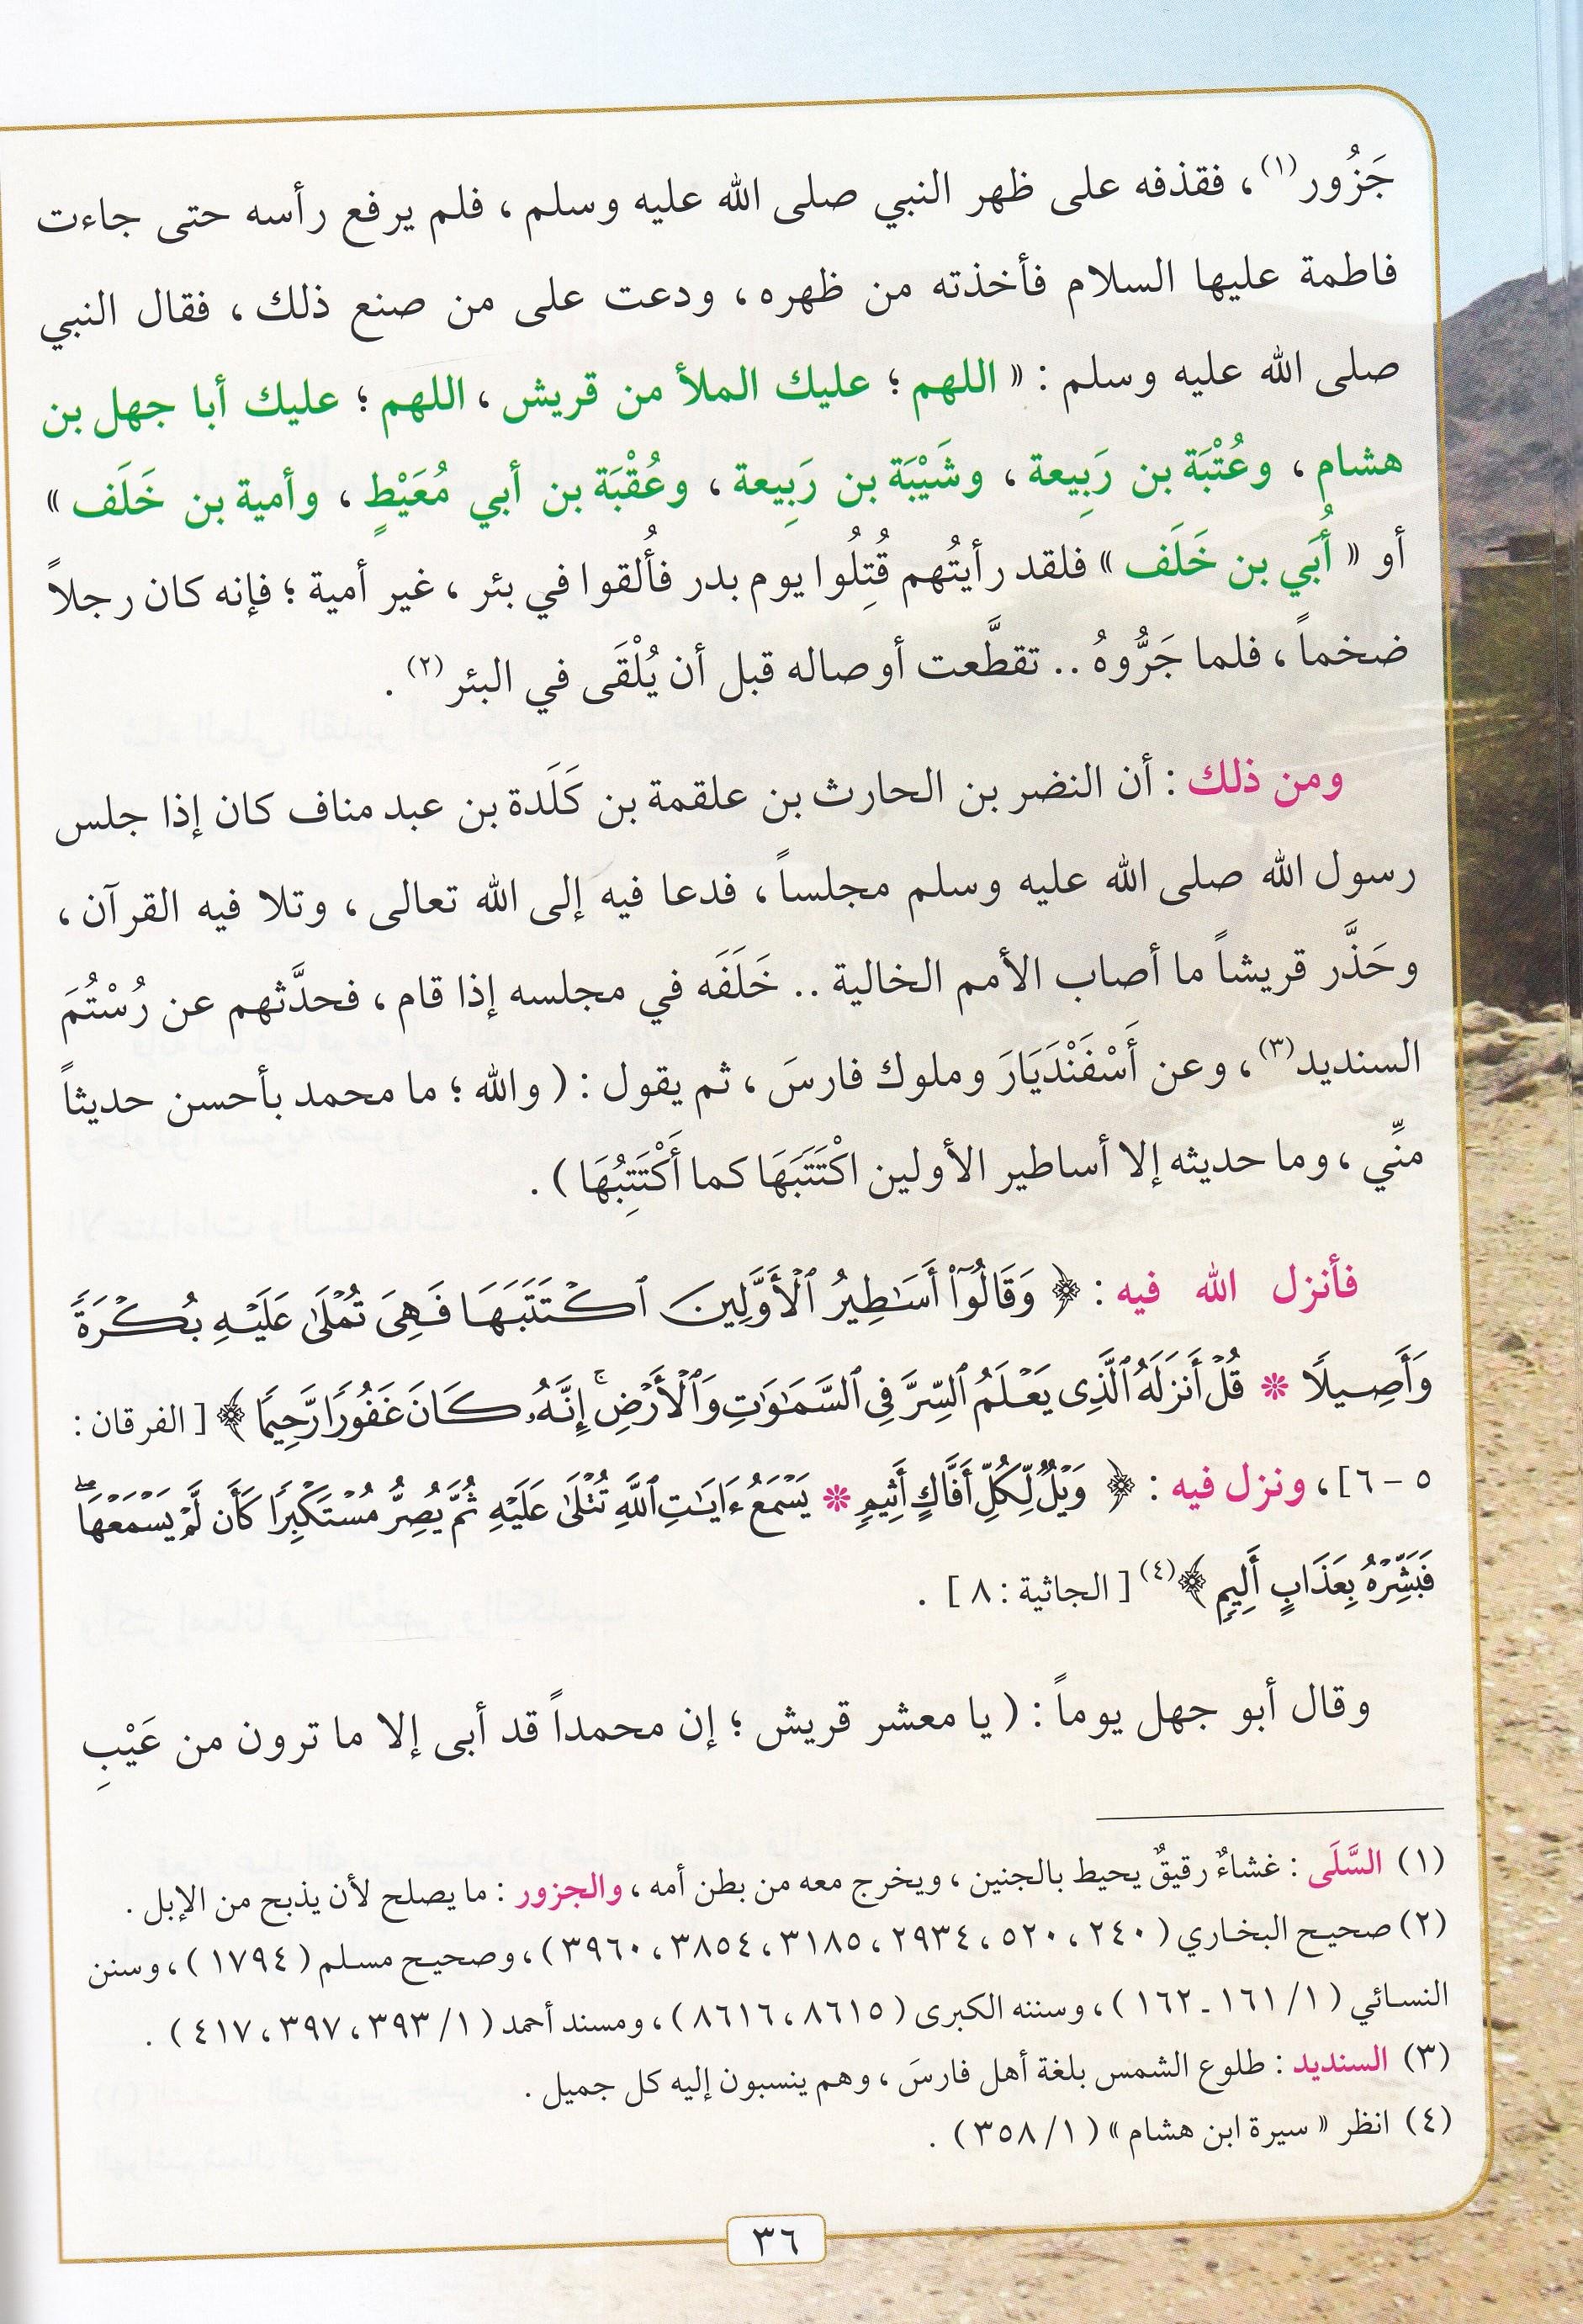 جَزُور(١)، فقذفه على ظهر النبي صلى الله عليه وسلم ، فلم يرفع رأسه حتى جاءت
فاطمة عليها السلام فأخذته من ظهره، ودعت على من صنع ذلك ، فقال النبي
صلى الله عليه وسلم : « اللهم ؛ عليك الملأ من قريش ، اللهم ؛ عليك أبا جهل بن
هشام ، وعُتْبَة بن رَبِيعة ، وشَيْبَة بن رَبِيعة ، وعُقْبَة بن أبي مُعَيْطٍ ، وأمية بن خَلَف »
أو « أُبَي بن خَلَف » فلقد رأيتُهم قُتِلُوا يوم بدر فأُلقوا في بئر ، غير أمية ؛ فإنه كان رجلاً
ضخماً ، فلما جَرُّوهُ .. تقطَّعت أوصاله قبل أن يُلْقَى في البئر (٢) .
ومن ذلك : أن النضر بن الحارث بن علقمة بن كَلَدة بن عبد مناف كان إذا جلس
رسول الله صلى الله عليه وسلم مجلساً ، فدعا فيه إلى الله تعالى ، وتلا فيه القرآن ،
وحَذَّر قريشاً ما أصاب الأمم الخالية .. خَلَفَه في مجلسه إذا قام ، فحدَّثهم عن رُسْتُمَ
السنديد(٣)، وعن أَسْفَنْدَيَارَ وملوك فارسَ ، ثم يقول : ( والله ؛ ما محمد بأحسن حديثاً
منِّي ، وما حديثه إلا أساطير الأولين اكْتَتَبَهَا كما أَكْتَتِبُهَا ) .
فأنزل الله فيه : ﴿ وَقَالُوٓا۟ أَسَٰطِيرُ ٱلْأَوَّلِينَ ٱكْتَتَبَهَا فَهِىَ تُمْلَىٰ عَلَيْهِ بُكْرَةً
وَأَصِيلًا * قُلْ أَنزَلَهُ ٱلَّذِى يَعْلَمُ ٱلسِّرَّ فِى ٱلسَّمَٰوَٰتِ وَٱلْأَرْضِ ۚ إِنَّهُۥ كَانَ غَفُورًا رَّحِيمًا ﴾ [ الفرقان :
٥ - ٦]، ونزل فيه : ﴿ وَيْلٌ لِّكُلِّ أَفَّاكٍ أَثِيمٍ * يَسْمَعُ ءَايَٰتِ ٱللَّهِ تُتْلَىٰ عَلَيْهِ ثُمَّ يُصِرُّ مُسْتَكْبِرًا كَأَن لَّمْ يَسْمَعْهَا ۖ
فَبَشِّرْهُ بِعَذَابٍ أَلِيمٍ ﴾(٤) [ الجاثية : ٨ ] .
وقال أبو جهل يوماً : ( يا معشر قريش ؛ إن محمداً قد أبى إلا ما ترون من عَيْبِ
(١) السَّلَى : غشاءٌ رقيقٌ يحيط بالجنين ، ويخرج معه من بطن أمه ، والجزور : ما يصلح لأن يذبح من الإبل .
(٢) صحيح البخاري ( ٢٤٠ ، ٥٢٠ ، ٢٩٣٤ ، ٣١٨٥ ، ٣٨٥٤ ، ٣٩٦٠ ) ، وصحيح مسلم ( ١٧٩٤ ) ، وسنن
النسائي ( ١/ ١٦١ ـ ١٦٢ ) ، وسننه الكبرى ( ٨٦١٥ ، ٨٦١٦ ) ، ومسند أحمد ( ١/ ٣٩٣ ، ٣٩٧ ، ٤١٧ ) .
(٣) السنديد : طلوع الشمس بلغة أهل فارسَ ، وهم ينسبون إليه كل جميل .
(٤) انظر « سيرة ابن هشام » ( ١/ ٣٥٨ ) .
٣٦